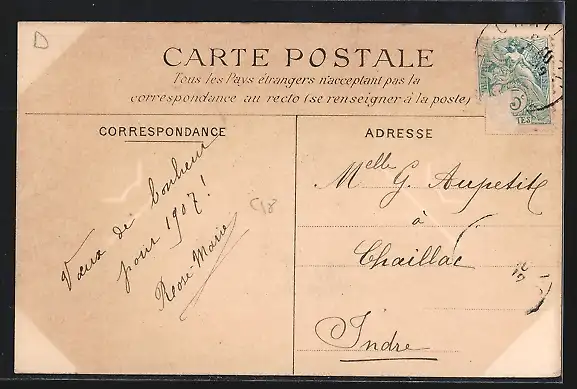 D
CARTE POSTALE
Tous les Pays étrangers n'acceptant pas la
correspondance au recto (se renseigner à la poste)
CORRESPONDANCE
Vœux de bonheur
pour 1907!
Rose-Marie
C18
ADRESSE
Melle G. Aupetit
à
Chaillac
Indre
5c